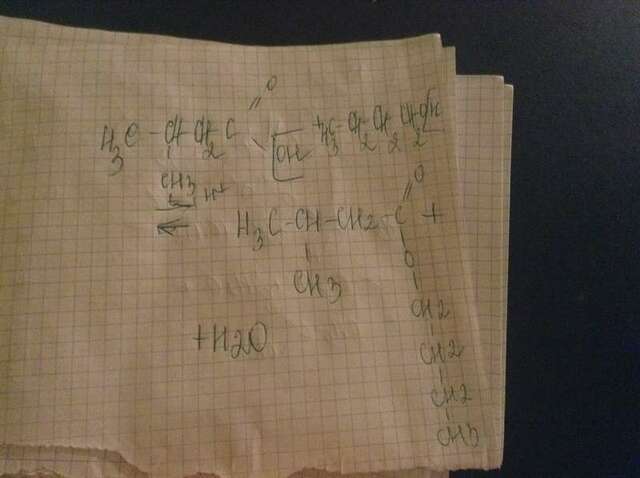 O
H3C - CH - CH2 C // \ OH H3C - CH2 CH2 CH2 OH
CH3 H+
O
H3C - CH - CH2 - C // +
O
CH3
CH2
+ H2O
CH2
CH2
CH3